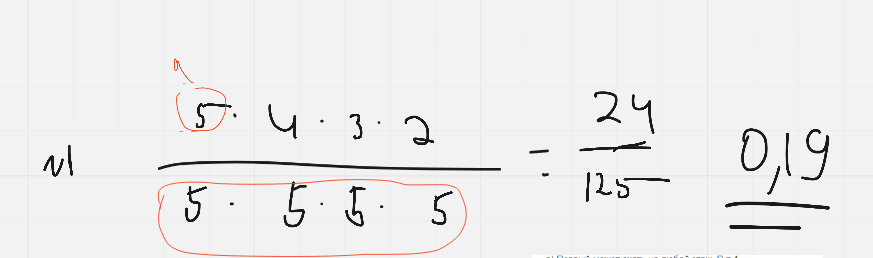 √1
5 · 4 · 3 · 2
5 · 5 · 5 · 5
= 24
125
0,19